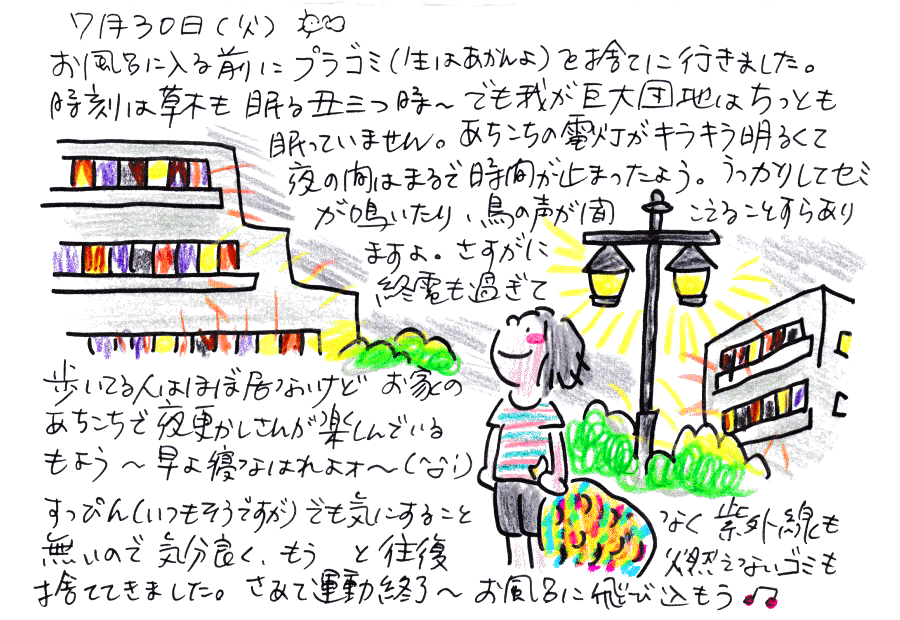 7月30日(火)
お風呂に入る前にプラゴミ(生はあかんよ)を捨てに行きました。
時刻は草木も眠る丑三つ時〜でも我が巨大団地はちっとも
眠っていません。あちこちの電灯がキラキラ明るくて
夜の間はまるで時間が止まったよう。うっかりしてセミ
が鳴いたり、鳥の声が聞こえることすらあり
ますよ。さすがに
終電も過ぎて
歩いてる人はほぼ居ないけど お家の
あちこちで夜更かしさんが楽しんでいる
もよう〜早よ寝なはれよォ〜(^^;)
すっぴん(いつもそうですが)でも気にすること なく紫外線も
無いので気分良く、もう と往復 燃えないゴミも
捨ててきました。さあて運動終了〜お風呂に飛び込もう♫